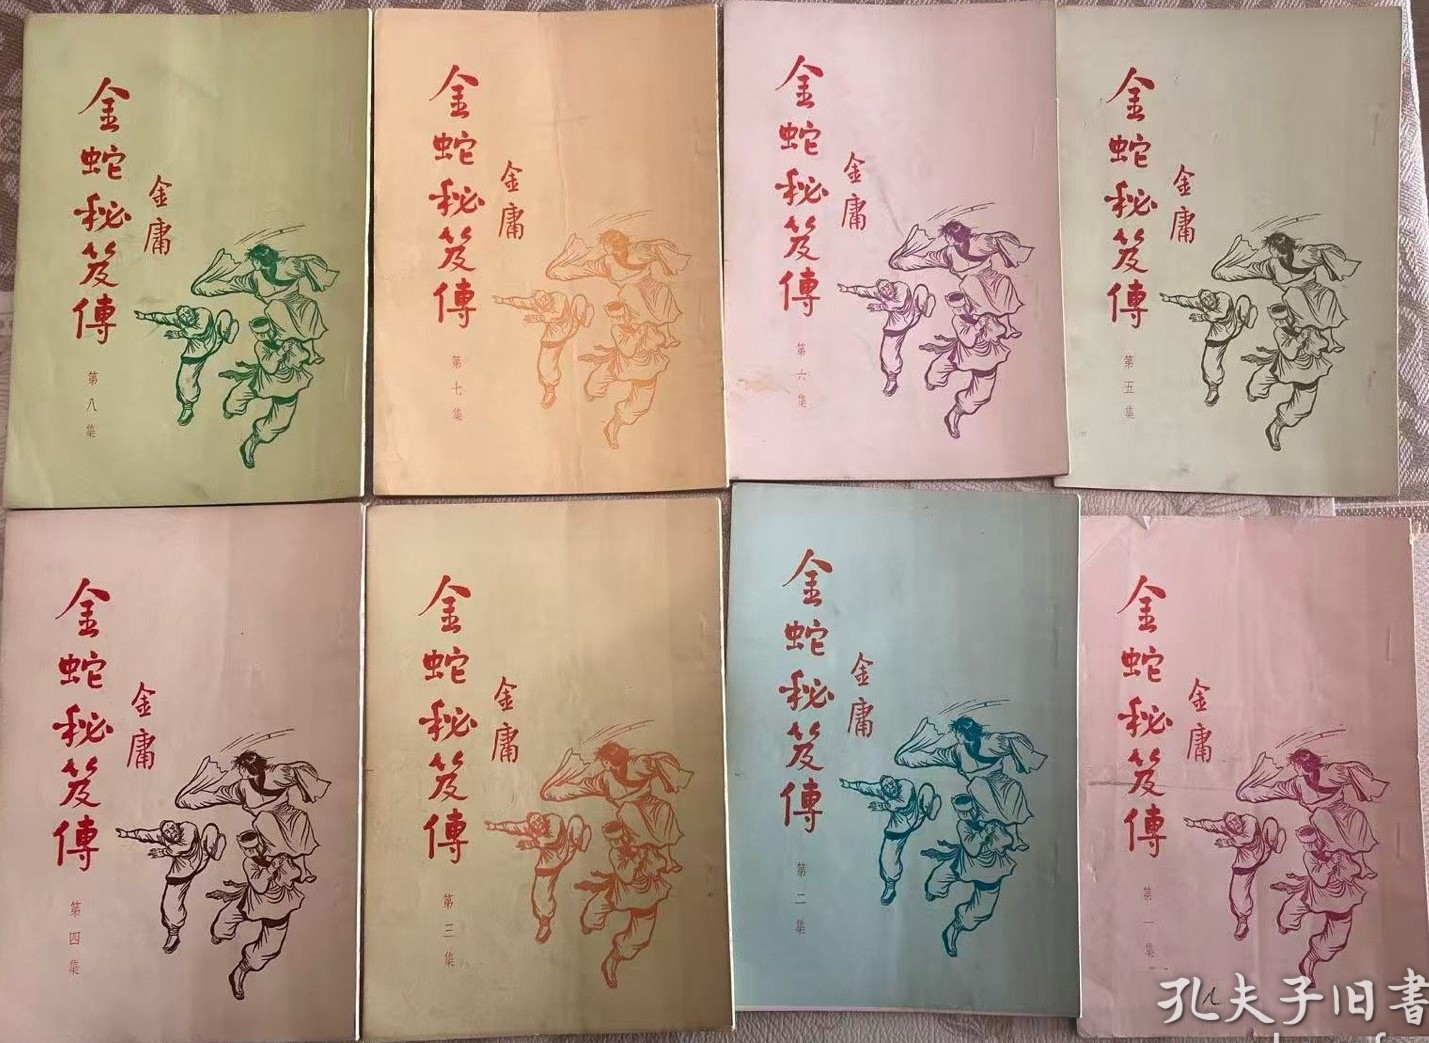 金蛇秘笈傳
金庸
第八集
金蛇秘笈傳
金庸
第七集
金蛇秘笈傳
金庸
第六集
金蛇秘笈傳
金庸
第五集
金蛇秘笈傳
金庸
第四集
金蛇秘笈傳
金庸
第三集
金蛇秘笈傳
金庸
第二集
金蛇秘笈傳
金庸
第一集
孔夫子旧書